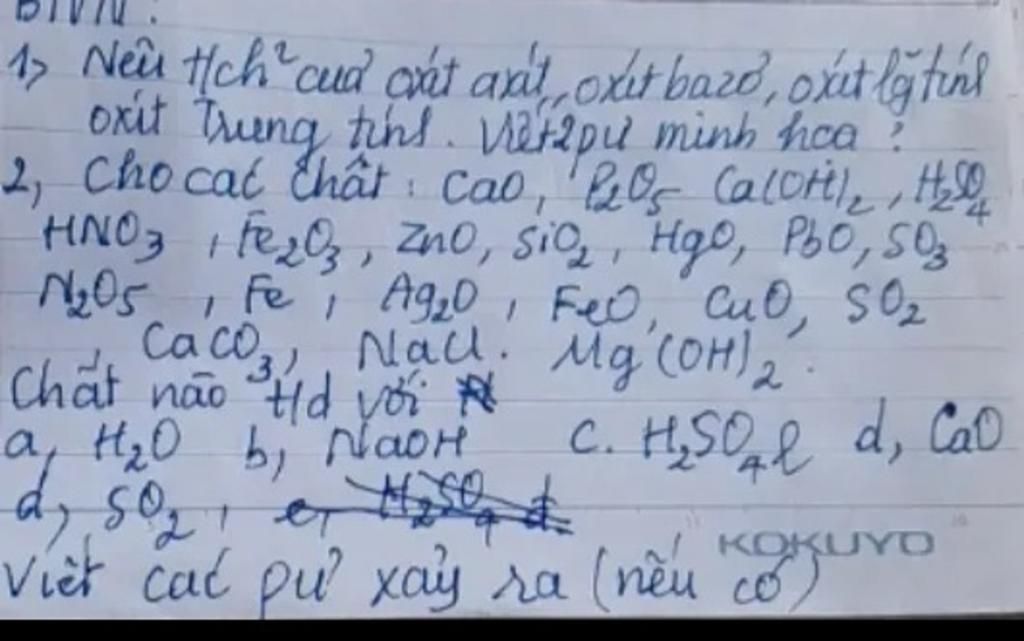 BTVN:
1> Nêu t/ch² của oxit axit, oxit bazơ, oxit lg̃ tính
oxit Trung tính. Viết 2 pư minh họa ?
2, Cho các chất : CaO, P₂O₅ Ca(OH)₂, H₂SO₄
HNO₃, Fe₂O₃, ZnO, SiO₂, HgO, PbO, SO₃
N₂O₅, Fe, Ag₂O, FeO, CuO, SO₂
, CaCO₃, NaCl. Mg(OH)₂.
Chất nào t/d với
a, H₂O b, NaOH c. H₂SO₄ l d, CaO
d, SO₂, e, H₂SO₄ đ
KOKUYO
Viết các pư xảy ra (nếu có)